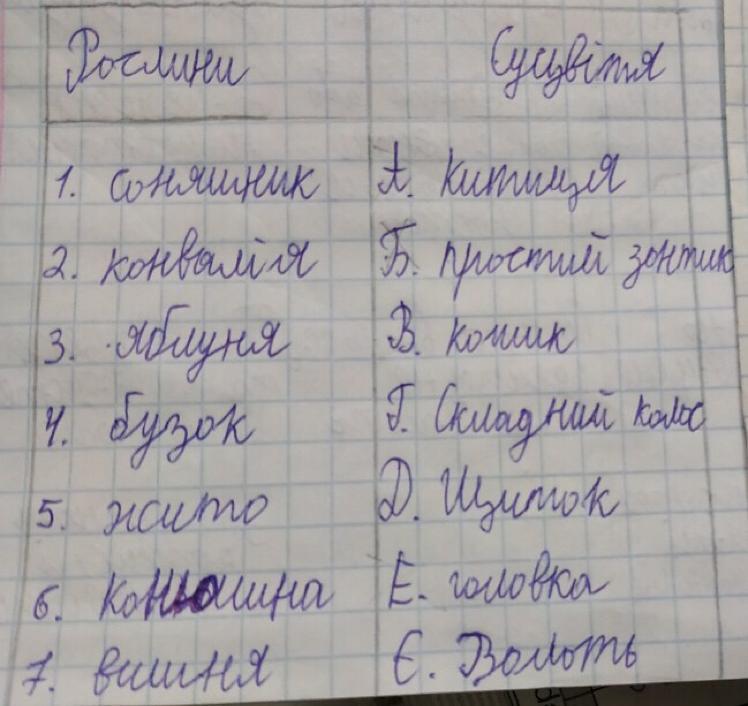 Рослини Суцвіття
1. соняшник А. китиця
2. конвалія Б. простий зонтик
3. яблуня В. кошик
4. бузок Г. Складний колос
5. жито Д. Щиток
6. конюшина Е. головка
7. вишня Є. Волоть